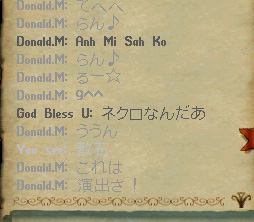 Donald.M: てへへ
Donald.M: らん♪
Donald.M: Anh Mi Sah Ko
Donald.M: らん♪
Donald.M: るー☆
Donald.M: 9^^
God Bless U: ネクロなんだあ
Donald.M: ううん
You see:
Donald.M: これは
Donald.M: 演出さ!